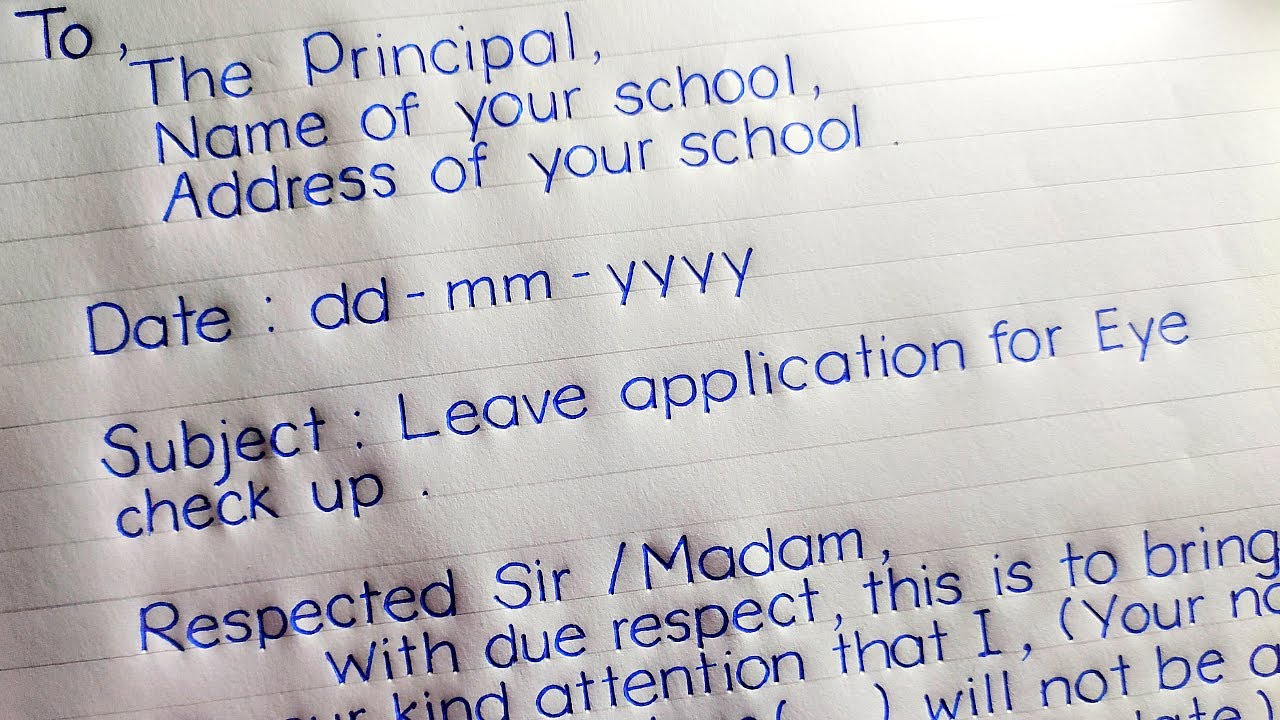 To,
The Principal,
Name of your school,
Address of your school.
Date : dd - mm - yyyy
Subject : Leave application for Eye
check up.
Respected Sir / Madam,
With due respect, this is to bring
kind attention that I, (Your
( ) will not be